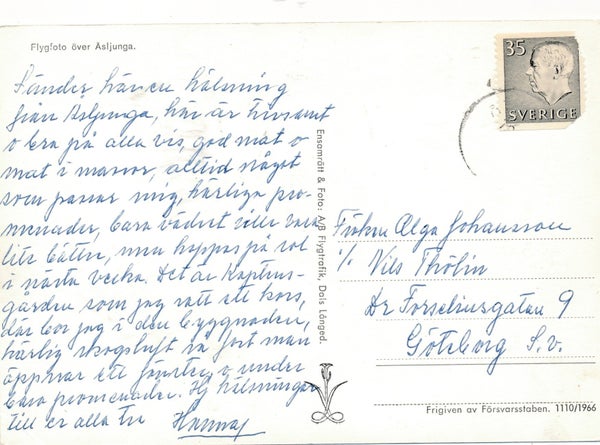 Flygfoto över Åsljunga.
Sänder här en hälsning
från Åsljunga, här är trivsamt
o bra på alla vis, god mat o
mat i massor, alltid något
som passar mig, härliga pro-
menader, bara vädret ville vara
lite bättre, men hoppas på sol
i nästa vecka. Det är Kaptens-
gården som jag satt ett kors,
där bor jag i den byggnaden,
härlig skogsluft så fort man
öppnar ett fönster, o under
bara promenader. Hj hälsningar
till er alla tre Hannas
Ensamrätt & Foto: A/B Flygtrafik, Dals Långed.
35
SVERIGE
Fröken Olga Johansson
% Nils Thölin
Dr Forseliusgatan 9
Göteborg S.v.
Frigiven av Försvarsstaben. 1110/1966